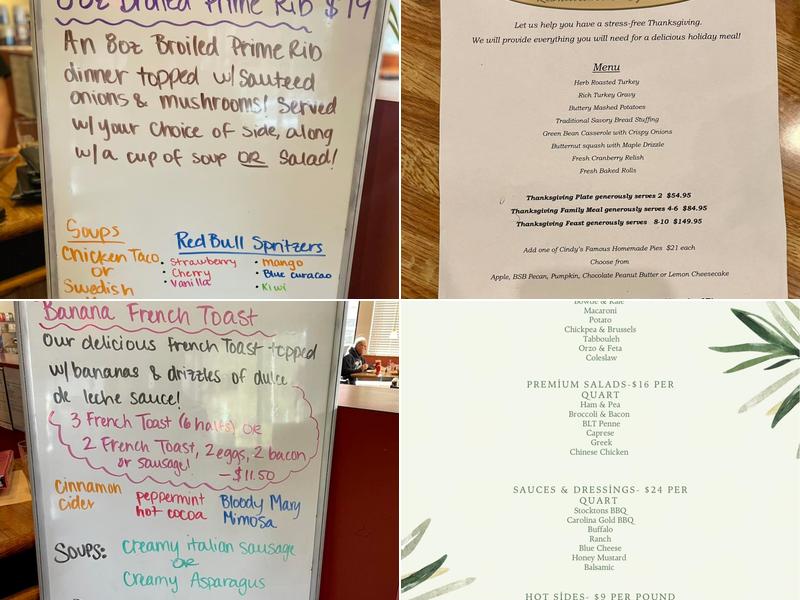 8oz Broiled Prime Rib $19
An 8oz Broiled Prime Rib
dinner topped w/ Sauteed
onions & mushrooms! Served
w/ your choice of side, along
w/ a cup of soup OR Salad!
Soups
Chicken Taco
or
Swedish
Red Bull Spritzers
• Strawberry
• Cherry
• Vanilla
• mango
• Blue curacao
• Kiwi
Let us help you have a stress-free Thanksgiving.
We will provide everything you will need for a delicious holiday meal!
Menu
Herb Roasted Turkey
Rich Turkey Gravy
Buttery Mashed Potatoes
Traditional Savory Bread Stuffing
Green Bean Casserole with Crispy Onions
Butternut squash with Maple Drizzle
Fresh Cranberry Relish
Fresh Baked Rolls
Thanksgiving Plate generously serves 2 $54.95
Thanksgiving Family Meal generously serves 4-6 $84.95
Thanksgiving Feast generously serves 8-10 $149.95
Add one of Cindy's Famous Homemade Pies $21 each
Choose from
Apple, BSB Pecan, Pumpkin, Chocolate Peanut Butter or Lemon Cheesecake
Banana French Toast
Our delicious French Toast topped
w/ bananas & drizzles of dulce
de leche sauce!
3 French Toast (6 halfs) OR
2 French Toast, 2 eggs, 2 bacon
or sausage!
- $11.50
Cinnamon
Cider
peppermint
hot cocoa
Bloody Mary
Mimosa
Soups: Creamy italian sausage
OR
Creamy Asparagus
Bowtie & Kale
Macaroni
Potato
Chickpea & Brussels
Tabbouleh
Orzo & Feta
Coleslaw
PREMİUM SALADS-$16 PER
QUART
Ham & Pea
Broccoli & Bacon
BLT Penne
Caprese
Greek
Chinese Chicken
SAUCES & DRESSİNGS- $24 PER
QUART
Stocktons BBQ
Carolina Gold BBQ
Buffalo
Ranch
Blue Cheese
Honey Mustard
Balsamic
HOT SİDES- $9 PER POUND